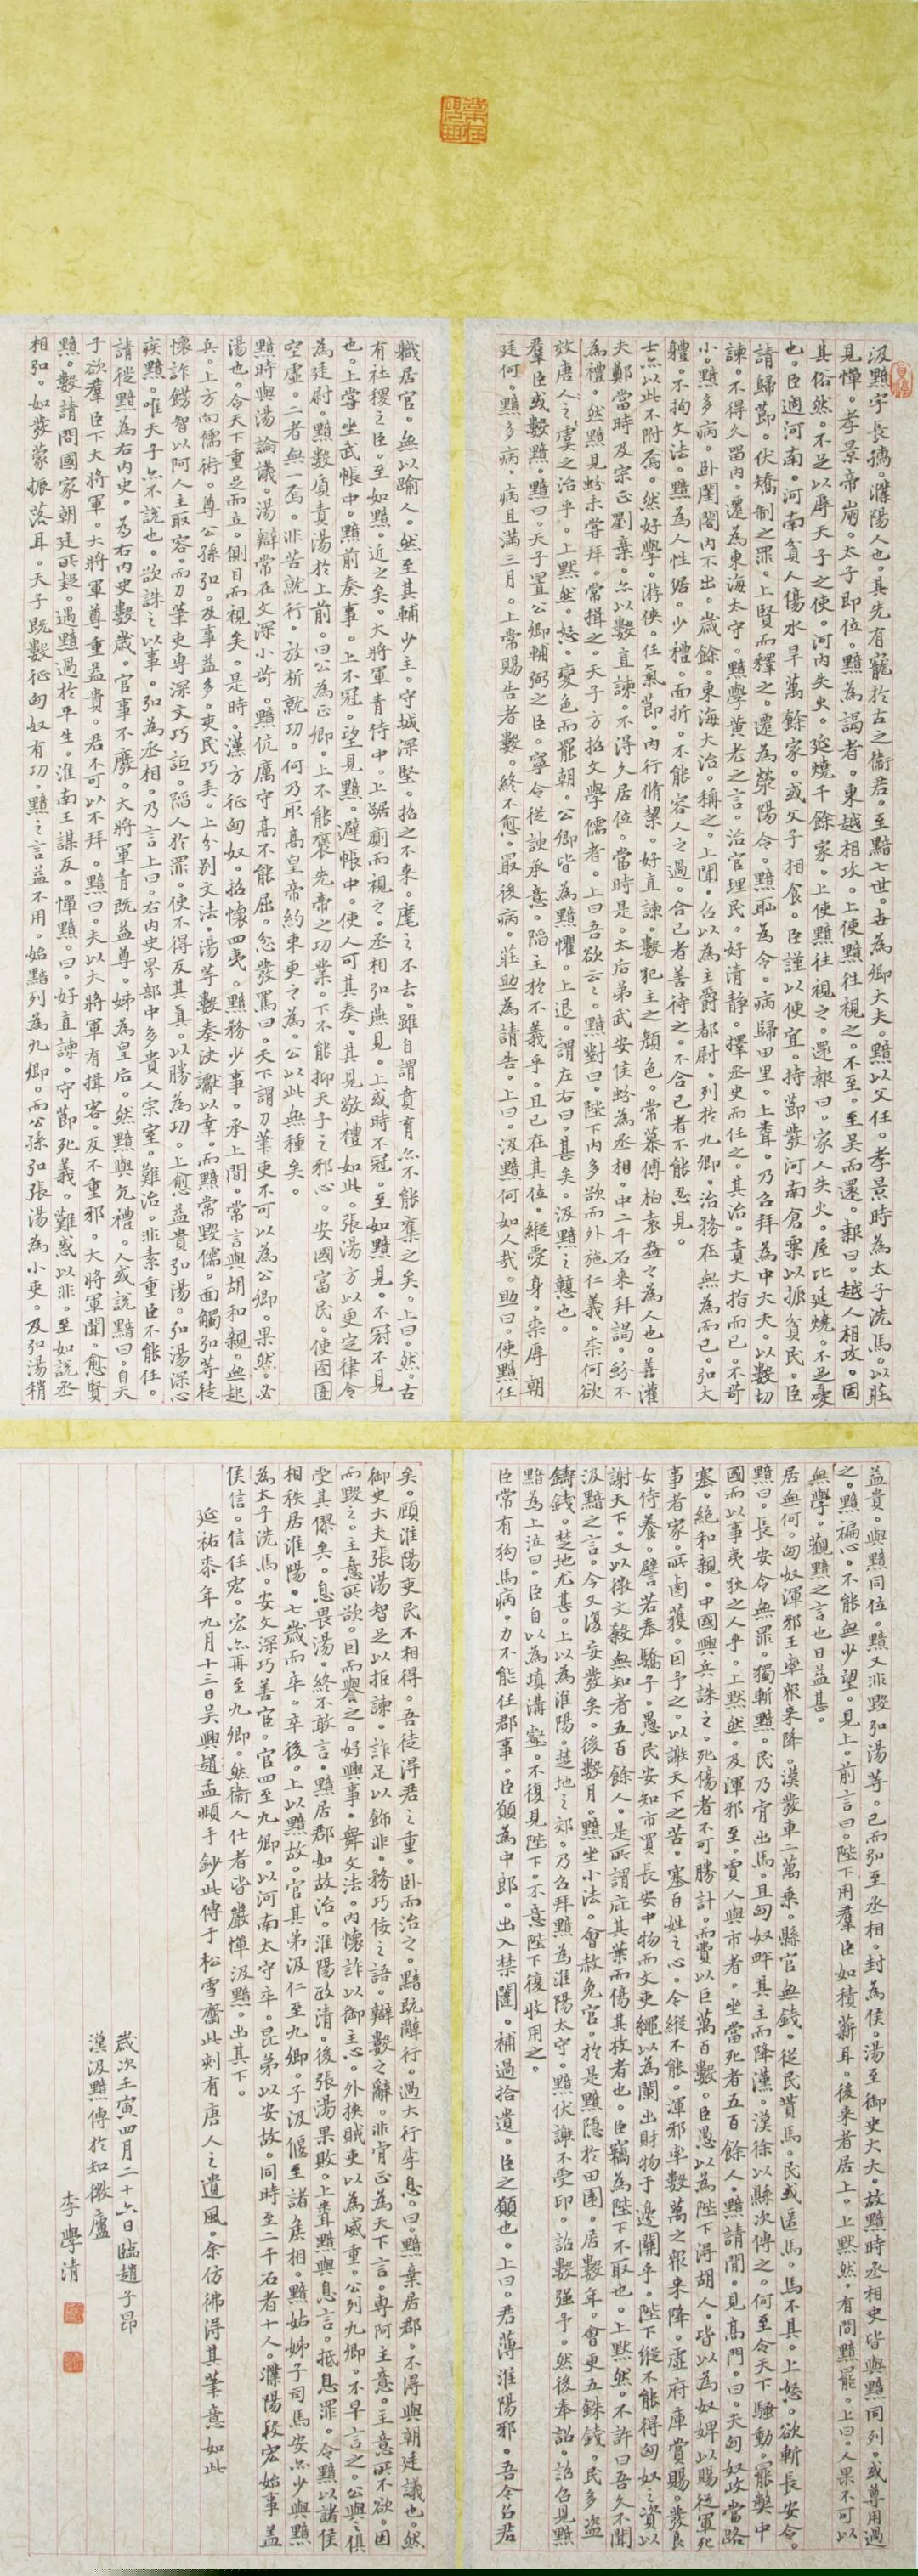 汲黯字長孺。濮陽人也。其先有寵於古之衞君。至黯七世。世為卿大夫。黯以父任。孝景時為太子洗馬。以莊
見憚。孝景帝崩。太子即位。黯為謁者。東越相攻。上使黯往視之。不至。至吳而還。報曰。越人相攻。固
其俗然。不足以辱天子之使。河內失火。延燒千餘家。上使黯往視之。還報曰。家人失火。屋比延燒。不足憂
也。臣過河南。河南貧人傷水旱萬餘家。或父子相食。臣謹以便宜。持節發河南倉粟以振貧民。臣
請歸節。伏矯制之罪。上賢而釋之。遷為滎陽令。黯恥為令。病歸田里。上聞。乃召拜為中大夫。以數切
諫。不得久留內。遷為東海太守。黯學黃老之言。治官理民。好清靜。擇丞史而任之。其治。責大指而已。不苛
小。黯多病。卧閨閤內不出。歲餘。東海大治。稱之。上聞。召以為主爵都尉。列於九卿。治務在無為而已。弘大
體。不拘文法。黯為人性倨。少禮。面折。不能容人之過。合己者善待之。不合己者不能忍見。
士亦以此不附焉。然好學。游俠。任氣節。內行脩絜。好直諫。數犯主之顏色。常慕傅柏袁盎之為人也。善灌
夫鄭當時及宗正劉棄。亦以數直諫。不得久居位。當時是。太后弟武安侯蚡為丞相。中二千石來拜謁。蚡不
為禮。然黯見蚡未嘗拜。常揖之。天子方招文學儒者。上曰吾欲云云。黯對曰。陛下內多欲而外施仁義。柰何欲
效唐人之虞之治乎。上默然。怒。變色而罷朝。公卿皆為黯懼。上退。謂左右曰。甚矣。汲黯之戇也。
羣臣或數黯。黯曰。天子置公卿輔弼之臣。寧令從諛承意。陷主於不義乎。且已在其位。縱愛身。柰辱朝
廷何。黯多病。病且滿三月。上常賜告者數。終不愈。最後病。莊助為請告。上曰。汲黯何如人哉。助曰。使黯任
職居官。無以踰人。然至其輔少主。守城深堅。招之不来。麾之不去。雖自謂賁育亦不能奪之矣。上曰。然。古
有社稷之臣。至如黯。近之矣。大將軍青侍中。上踞廁而視之。丞相弘燕見。上或時不冠。至如黯見。不冠不見
也。上嘗坐武帳中。黯前奏事。上不冠。望見黯。避帳中。使人可其奏。其見敬禮如此。張湯方以更定律令
為廷尉。黯數質責湯於上前。曰公為正卿。上不能襃先帝之功業。下不能抑天子之邪心。安國富民。使囹圄
空虛。二者無一焉。非苦就行。放析就功。何乃取高皇帝約束更之為。公以此無種矣。
黯時與湯論議。湯辯常在文深小苛。黯伉厲守高不能屈。忿發罵曰。天下謂刀筆吏不可以為公卿。果然。必
湯也。令天下重足而立。側目而視矣。是時。漢方征匈奴。招懷四夷。黯務少事。承上間。常言與胡和親。無起
兵。上方向儒術。尊公孫弘。及事益多。吏民巧弄。上分别文法。湯等數奏決讞以幸。而黯常毀儒。面觸弘等徒
懷詐飾智以阿人主取容。而刀筆吏專深文巧詆。陷人於罪。使不得反其真。以勝為功。上愈益貴弘湯。弘湯深心
疾黯。唯天子亦不說也。欲誅之以事。弘為丞相。乃言上曰。右內史界部中多貴人宗室。難治。非素重臣不能任。
請徙黯為右內史。為右內史數歲。官事不廢。大將軍青既益尊。姊為皇后。然黯與亢禮。人或說黯曰。自天
子欲羣臣下大將軍。大將軍尊重益貴。君不可以不拜。黯曰。夫以大將軍有揖客。反不重邪。大將軍聞。愈賢
黯。數請問國家朝廷所疑。遇黯過於平生。淮南王謀反。憚黯曰。好直諫。守節死義。難惑以非。至如說丞
相弘。如發蒙振落耳。天子既數征匈奴有功。黯之言益不用。始黯列為九卿。而公孫弘張湯為小吏。及弘湯稍
益貴。與黯同位。黯又非毀弘湯等。已而弘至丞相。封為侯。湯至御史大夫。故黯時丞相史皆與黯同列。或尊用過
之。黯褊心。不能無少望。見上。前言曰。陛下用羣臣如積薪耳。後来者居上。上默然。有間黯罷。上曰。人果不可以
無學。觀黯之言也日益甚。
居無何。匈奴渾邪王率衆来降。漢發車二萬乘。縣官無錢。從民貰馬。民或匿馬。馬不具。上怒。欲斬長安令。
黯曰。長安令無罪。獨斬黯。民乃肯出馬。且匈奴畔其主而降漢。漢徐以縣次傳之。何至令天下騷動。罷獘中
國而以事夷狄之人乎。上默然。及渾邪至。賈人與市者。坐當死者五百餘人。黯請間。見高門。曰。夫匈奴攻當路
塞。絶和親。中國興兵誅之。死傷者不可勝計。而費以巨萬百數。臣愚以為陛下得胡人。皆以為奴婢以賜從軍死
事者家。所鹵獲。因予之。以謝天下之苦。塞百姓之心。今縱不能。渾邪率數萬之衆来降。虛府庫賞賜。發良
女侍養。譬若奉驕子。愚民安知市買長安中物而文吏繩以為闌出財物于邊關乎。陛下縱不能得匈奴之資以
謝天下。又以微文殺無知者五百餘人。是所謂庇其葉而傷其枝者也。臣竊為陛下不取也。上默然。不許曰吾久不聞
汲黯之言。今又復妄發矣。後數月。黯坐小法。會赦免官。於是黯隱於田園。居數年。會更五銖錢。民多盜
鑄錢。楚地尤甚。上以為淮陽。楚地之郊。乃召拜黯為淮陽太守。黯伏謝不受印。詔數强予。然後奉詔。詔召見黯
黯為上泣曰。臣自以為填溝壑。不復見陛下。不意陛下復收用之。
臣常有狗馬病。力不能任郡事。臣願為中郎。出入禁闥。補過拾遺。臣之願也。上曰。君薄淮陽邪。吾今召君
矣。顧淮陽吏民不相得。吾徒得君之重。卧而治之。黯既辭行。過大行李息。曰。黯棄居郡。不得與朝廷議也。然
御史大夫張湯智足以拒諫。詐足以飾非。務巧佞之語。辯數之辭。非肯正為天下言。專阿主意。主意所不欲。因
而毀之。主意所欲。因而譽之。好興事。舞文法。內懷詐以御主心。外挾賊吏以為威重。公列九卿。不早言之。公與之俱
受其僇矣。息畏湯。終不敢言。黯居郡如故治。淮陽政清。後張湯果敗。上聞黯與息言。抵息罪。令黯以諸侯
相秩居淮陽。七歲而卒。卒後。上以黯故。官其弟汲仁至九卿。子汲偃至諸侯相。黯姑姊子司馬安亦少與黯
為太子洗馬。安文深巧善宦。官四至九卿。以河南太守卒。昆弟以安故。同時至二千石者十人。濮陽段宏始事蓋
侯信。信任宏。宏亦再至九卿。然衞人仕者皆嚴憚汲黯。出其下。
延祐柒年九月十三日吳興趙孟頫手鈔此傳于松雪齋此刻有唐人之遺風。余仿彿得其筆意如此
歲次壬寅四月二十六日臨趙子昂
漢汲黯傳於知微廬
李學清